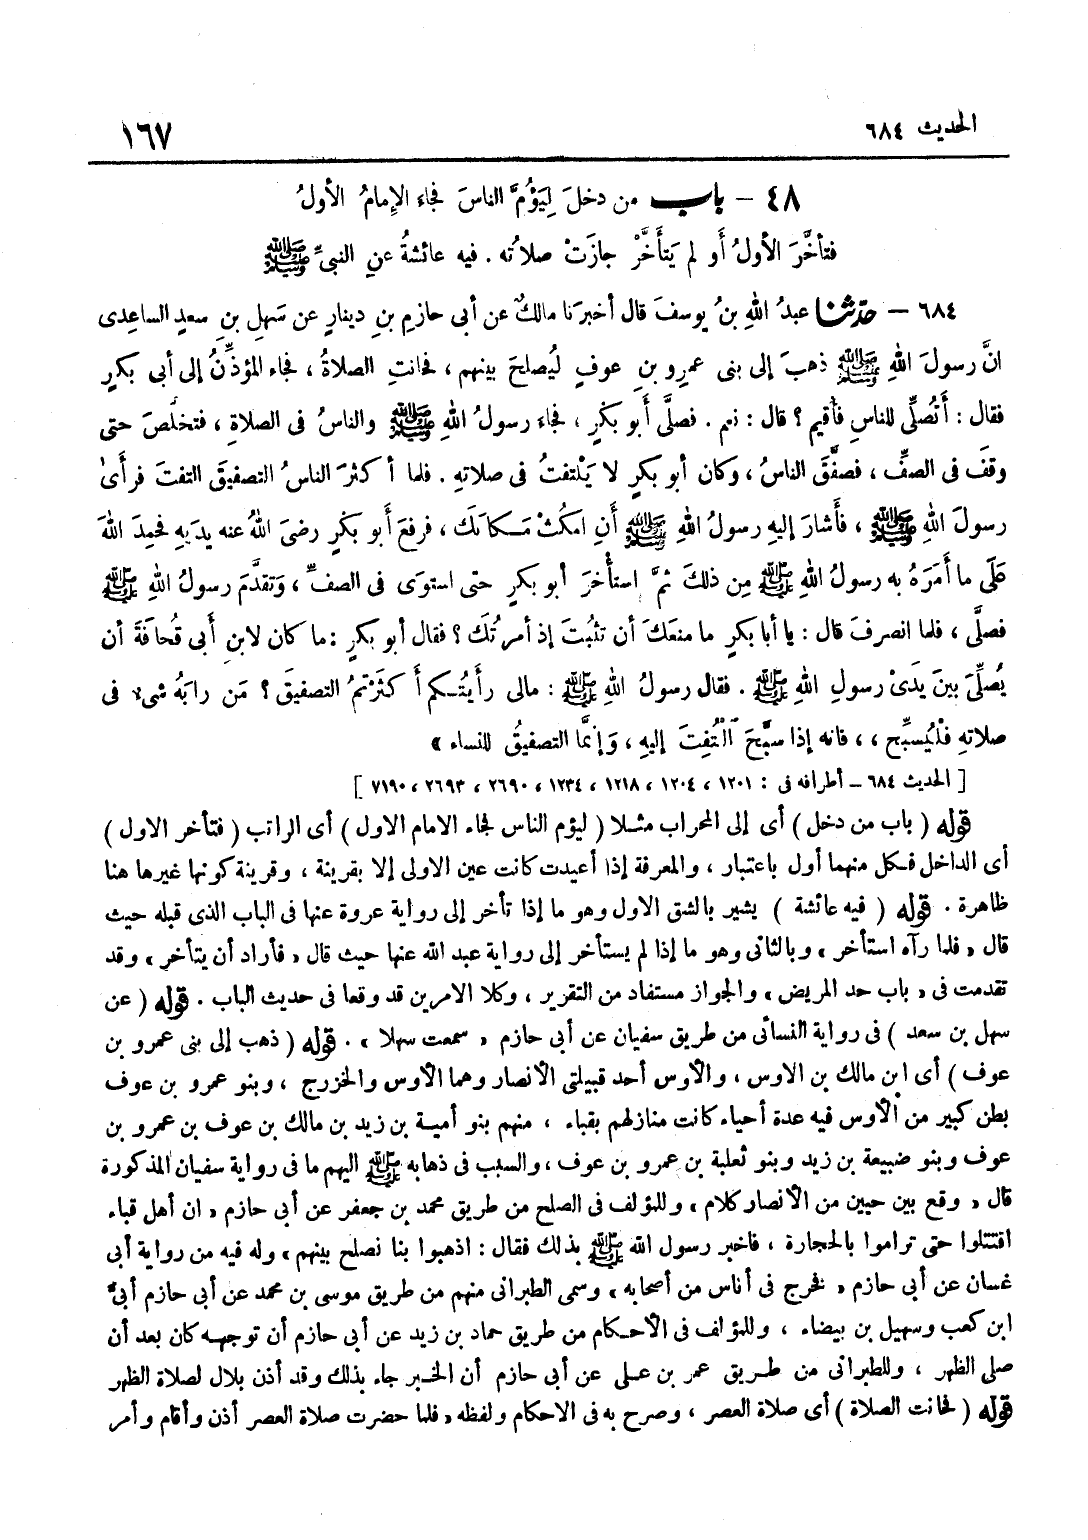 الحديث ٦٨٤ ١٦٧
٤٨ – باب من دخلَ لِيَؤُمَّ الناسَ فجاءَ الإِمامُ الأولُ
فتأخَّرَ الأولُ أَو لم يَتأَخَّرْ جازَتْ صلاتُه . فيه عائشةُ عنِ النبيِّ ﷺ
٦٨٤ – حدّثنا عبدُ اللهِ بنُ يوسفَ قال أخبرَنا مالكٌ عن أبى حازمِ بنِ دينارٍ عن سَهلِ بنِ سعدٍ الساعِدى
انَّ رسولَ اللهِ ﷺ ذهبَ إلى بنى عمرِو بنِ عوفٍ ليُصلحَ بينهم ، فحانتِ الصلاةُ ، فجاء المؤذِّنُ إلى أبى بكرٍ
فقال : أَتُصلِّى للناسِ فأُقيم ؟ قال : نعم . فصلَّى أبو بكرٍ ، فجاء رسولُ اللهِ ﷺ والناسُ فى الصلاةِ ، فتخلَّصَ حتى
وقفَ فى الصفِّ ، فصفَّقَ الناسُ ، وكان أبو بكرٍ لا يَلْتفتُ فى صلاتهِ . فلما أكثرَ الناسُ التصفيقَ التفتَ فرأَى
رسولَ اللهِ ﷺ ، فأَشارَ إليهِ رسولُ اللهِ ﷺ أَنِ امكُثْ مَكانَكَ ، فرفعَ أَبو بكرٍ رضىَ اللهُ عنه يديهِ فحمِدَ اللهَ
عَلَى ما أَمَرَهُ به رسولُ اللهِ ﷺ مِن ذلكَ ثمَّ استأْخرَ أبو بكرٍ حتى استوَى فى الصفِّ ، وَتقدَّمَ رسولُ اللهِ ﷺ
فصلَّى ، فلما انصرفَ قال : يا أبا بكرٍ ما منعَكَ أن تثبُتَ إذ أمرتُكَ ؟ فقال أبو بكرٍ : ما كان لابنِ أَبى قُحافَةَ أن
يُصلِّىَ بينَ يدَىْ رسولِ اللهِ ﷺ . فقال رسولُ اللهِ ﷺ : مالى رأَيتُكم أَكثَرْتمُ التصفيقَ ؟ مَن رابَهُ شىءٌ فى
صلاتهِ فلْيُسبِّح ، ، فانه إذا سبَّحَ الْتُفِتَ إليهِ ، وَإنمَّا التصفيقُ للنساء »
[ الحديث ٦٨٤ – أطرافه فى : ١٢٠١ ، ١٢٠٤ ، ١٢١٨ ، ١٢٣٤ ، ٢٦٩٠ ، ٢٦٩٣ ، ٧١٩٠ ]
قوله ( باب من دخل ) أى إلى المحراب مثلا ( ليؤم الناس فجاء الامام الاول ) أى الراتب ( فتأخر الاول )
أى الداخل فكل منهما أول باعتبار ، والمعرفة إذا أعيدت كانت عين الاولى إلا بقرينة ، وقرينة كونها غيرها هنا
ظاهرة . قوله ( فيه عائشة ) يشير بالشق الاول وهو ما إذا تأخر إلى رواية عروة عنها فى الباب الذى قبله حيث
قال « فلما رآه استأخر » وبالثانى وهو ما إذا لم يستأخر إلى رواية عبد الله عنها حيث قال « فأراد أن يتأخر » وقد
تقدمت فى « باب حد المريض » والجواز مستفاد من التقرير ، وكلا الامرين قد وقعا فى حديث الباب . قوله ( عن
سهل بن سعد ) فى رواية النسائى من طريق سفيان عن أبى حازم « سمعت سهلا » . قوله ( ذهب إلى بنى عمرو بن
عوف ) أى ابن مالك بن الاوس ، والأوس أحد قبيلتى الأنصار وهما الأوس والخزرج ، وبنو عمرو بن عوف
بطن كبير من الأوس فيه عدة أحياء كانت منازلهم بقباء ، منهم بنو أمية بن زيد بن مالك بن عوف بن عمرو بن
عوف وبنو ضبيعة بن زيد وبنو ثعلبة بن عمرو بن عوف ، والسبب فى ذهابه ﷺ اليهم ما فى رواية سفيان المذكورة
قال « وقع بين حيين من الأنصار كلام » وللمؤلف فى الصلح من طريق محمد بن جعفر عن أبى حازم « ان أهل قباء
اقتتلوا حتى تراموا بالحجارة ، فاخبر رسول الله ﷺ بذلك فقال : اذهبوا بنا نصلح بينهم » وله فيه من رواية أبى
غسان عن أبى حازم « فخرج فى أناس من أصحابه » وسمى الطبرانى منهم من طريق موسى بن محمد عن أبى حازم أبىّ
ابن كعب وسهيل بن بيضاء ، وللمؤلف فى الأحكام من طريق حماد بن زيد عن أبى حازم أن توجهه كان بعد أن
صلى الظهر ، وللطبرانى من طريق عمر بن على عن أبى حازم أن الخبر جاء بذلك وقد أذن بلال لصلاة الظهر
قوله ( فحانت الصلاة ) أى صلاة العصر ، وصرح به فى الاحكام ولفظه « فلما حضرت صلاة العصر أذن وأقام وأمر